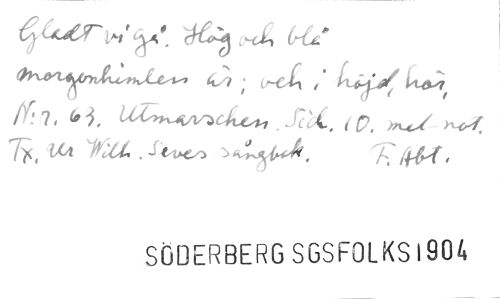 Gladt vi gå. Hög och blå
morgonhimlen är; och i höjd, hör,
N:r. 63. Utmarschen. Sid. 10. mel-not.
Tx. ur Wilh. Seves sångbok. F. Abt.
SÖDERBERG SGSFOLKS 1904